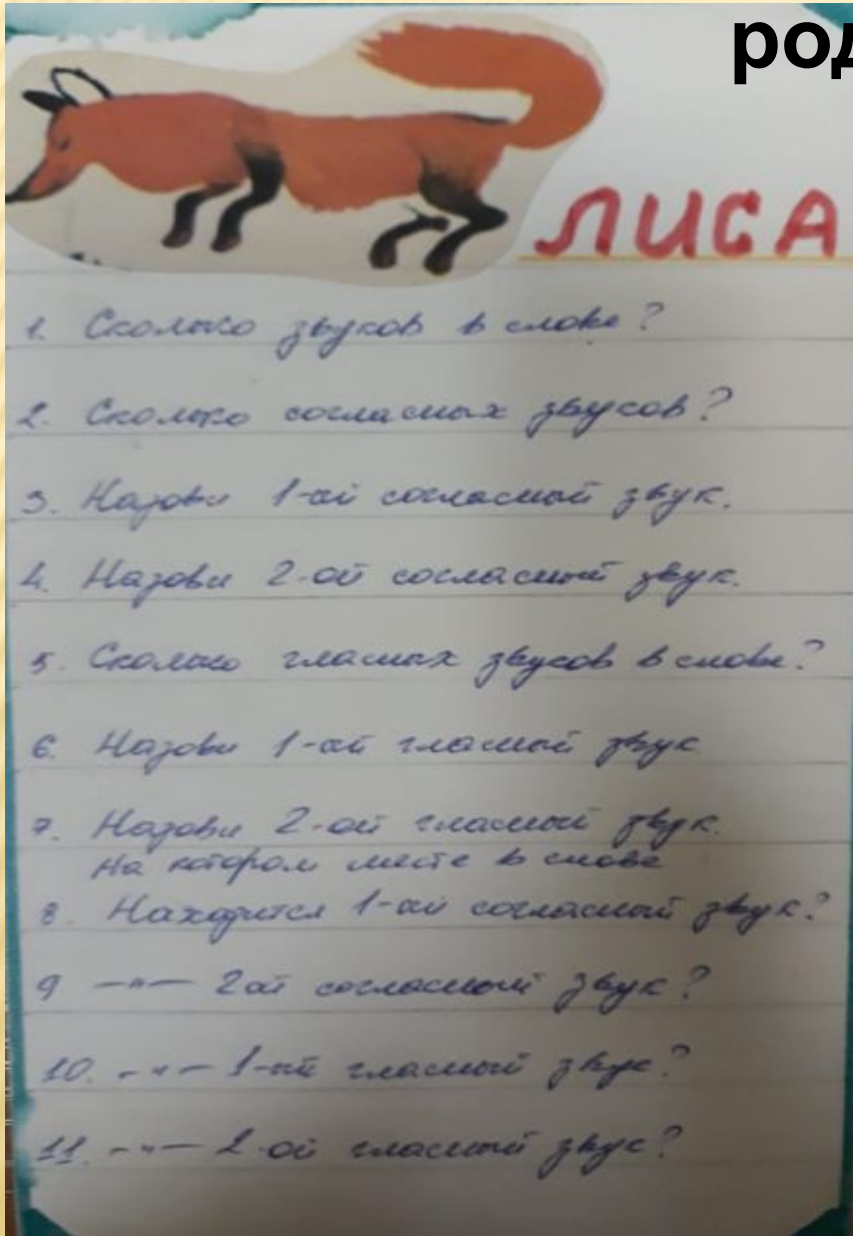 род
ЛИСА
1. Сколько звуков в слове?
2. Сколько согласных звуков?
3. Назови 1-ый согласный звук.
4. Назови 2-ой согласный звук.
5. Сколько гласных звуков в слове?
6. Назови 1-ый гласный звук
7. Назови 2-ой гласный звук.
На котором месте в слове
8. Находится 1-ый согласный звук?
9 —"— 2ой согласный звук?
10. -"- 1-ый гласный звук?
11. -"- 2-ой гласный звук?